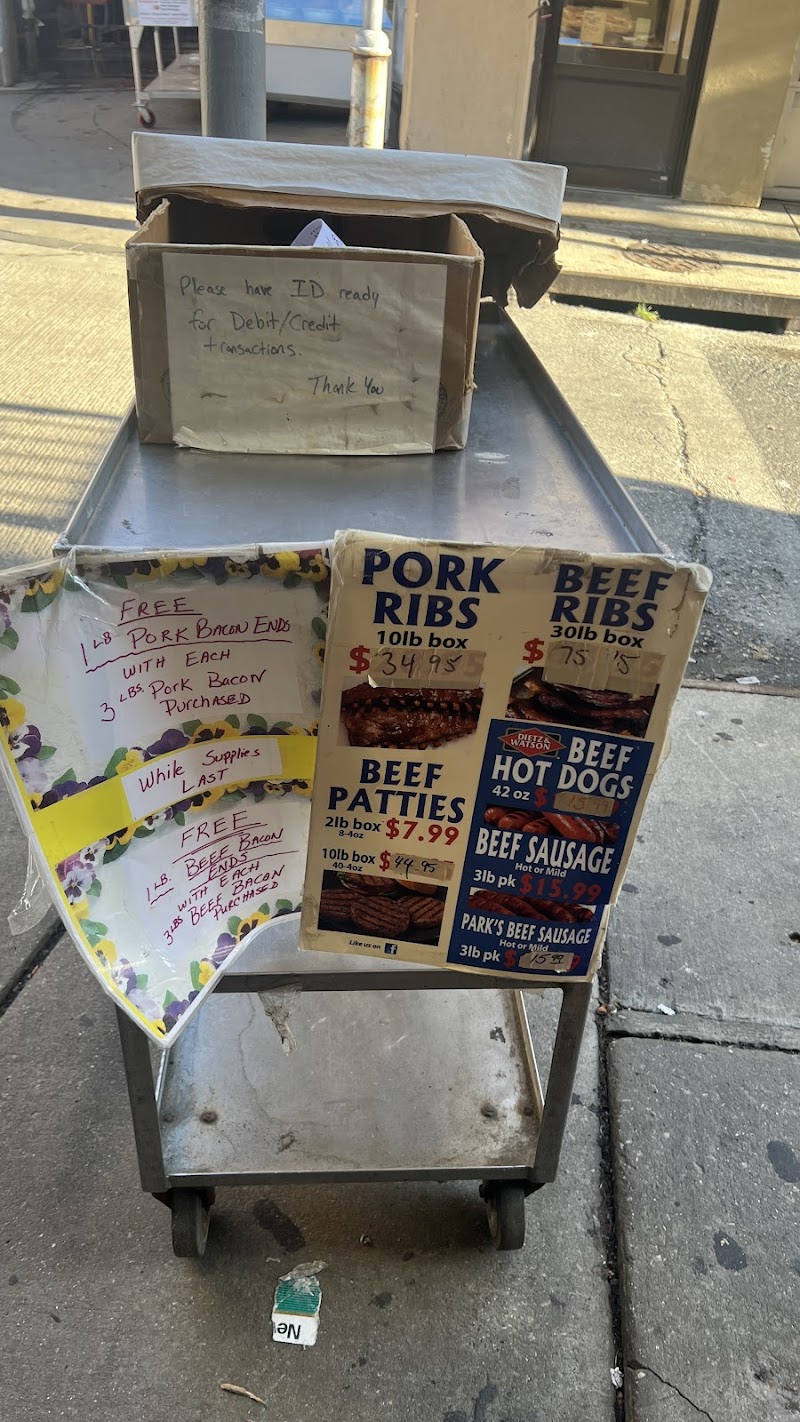 Please have ID ready
for Debit/Credit
transactions.
Thank You
FREE
1 LB PORK BACON ENDS
WITH EACH
3 LBS. PORK BACON
PURCHASED
While Supplies
LAST
FREE
1 LB. BEEF BACON
ENDS
WITH EACH
3 LBS BEEF BACON
PURCHASED
PORK
RIBS
10lb box
$34.95
BEEF
RIBS
30lb box
$
BEEF
PATTIES
2lb box $7.99
8-4oz
10lb box $44.95
40-4oz
Like us on f
DIETZ &
WATSON
BEEF
HOT DOGS
42 oz $15.99
BEEF SAUSAGE
Hot or Mild
3lb pk $15.99
PARK'S BEEF SAUSAGE
Hot or Mild
3lb pk $15.99
Ne